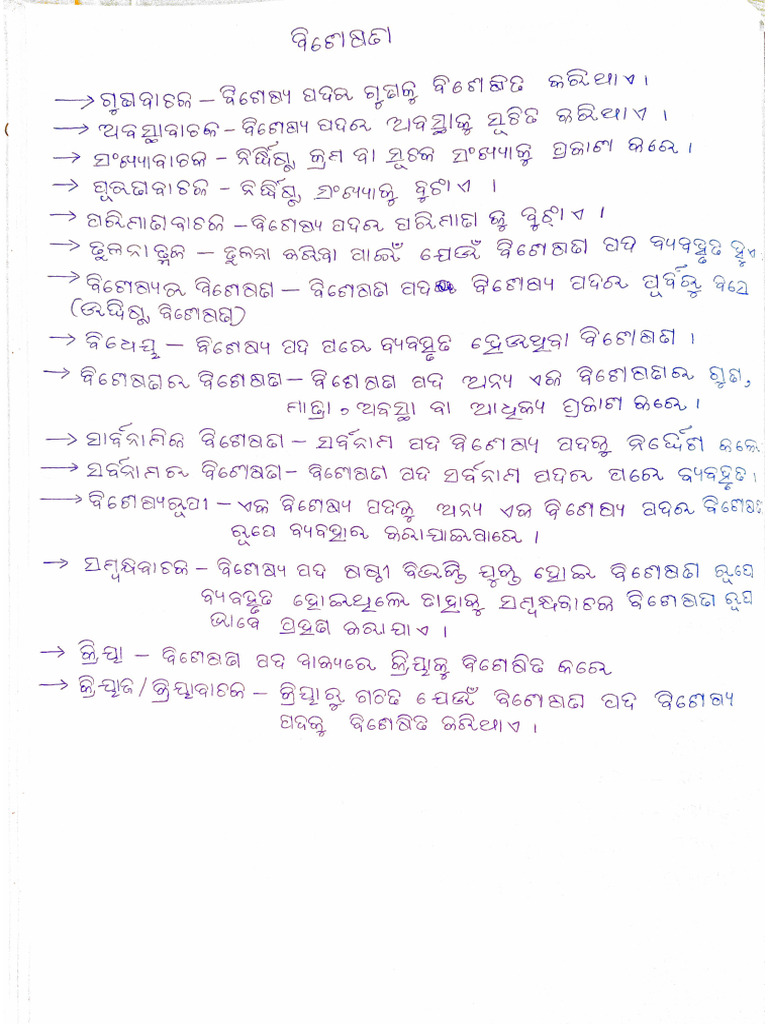 ବିଶେଷଣ
→ ଗୁଣବାଚକ – ବିଶେଷ୍ୟ ପଦର ଗୁଣକୁ ବିଶେଷିତ କରିଥାଏ ।
→ ଅବସ୍ଥାବାଚକ – ବିଶେଷ୍ୟ ପଦର ଅବସ୍ଥାକୁ ସୂଚିତ କରିଥାଏ ।
→ ସଂଖ୍ୟାବାଚକ – ନିର୍ଦ୍ଦିଷ୍ଟ, କ୍ରମ ବା ସୂଚକ ସଂଖ୍ୟାକୁ ପ୍ରକାଶ କରେ ।
→ ପୂରଣବାଚକ – ନିର୍ଦ୍ଦିଷ୍ଟ ସଂଖ୍ୟାକୁ ବୁଝାଏ ।
→ ପରିମାଣବାଚକ – ବିଶେଷ୍ୟ ପଦର ପରିମାଣ କୁ ବୁଝାଏ ।
→ ତୁଳନାତ୍ମକ – ତୁଳନା କରିବା ପାଇଁ ଯେଉଁ ବିଶେଷଣ ପଦ ବ୍ୟବହୃତ ହୁଏ
→ ବିଶେଷ୍ୟର ବିଶେଷଣ – ବିଶେଷଣ ପଦ ବିଶେଷ୍ୟ ପଦର ପୂର୍ବରୁ ବସେ
(ଉଦ୍ଦିଷ୍ଟ ବିଶେଷଣ)
→ ବିଧେୟ – ବିଶେଷ୍ୟ ପଦ ପରେ ବ୍ୟବହୃତ ହେଉଥିବା ବିଶେଷଣ ।
→ ବିଶେଷଣର ବିଶେଷଣ – ବିଶେଷଣ ପଦ ଅନ୍ୟ ଏକ ବିଶେଷଣର ଗୁଣ,
ମାତ୍ରା, ଅବସ୍ଥା ବା ଆଧିକ୍ୟ ପ୍ରକାଶ କରେ ।
→ ସାର୍ବନାମିକ ବିଶେଷଣ – ସର୍ବନାମ ପଦ ବିଶେଷ୍ୟ ପଦକୁ ନିର୍ଦ୍ଦେଶ କଲେ
→ ସର୍ବନାମର ବିଶେଷଣ – ବିଶେଷଣ ପଦ ସର୍ବନାମ ପଦର ପରେ ବ୍ୟବହୃତ ।
→ ବିଶେଷ୍ୟରୂପୀ – ଏକ ବିଶେଷ୍ୟ ପଦକୁ ଅନ୍ୟ ଏକ ବିଶେଷ୍ୟ ପଦର ବିଶେଷଣ
ରୂପେ ବ୍ୟବହାର କରାଯାଇପାରେ ।
→ ସମ୍ବନ୍ଧବାଚକ – ବିଶେଷ୍ୟ ପଦ ଷଷ୍ଠୀ ବିଭକ୍ତି ଯୁକ୍ତ ହୋଇ ବିଶେଷଣ ରୂପେ
ବ୍ୟବହୃତ ହୋଇଥିଲେ ତାହାକୁ ସମ୍ବନ୍ଧବାଚକ ବିଶେଷଣ ରୂପ
ଭାବେ ଗ୍ରହଣ କରାଯାଏ ।
→ କ୍ରିୟା – ବିଶେଷଣ ପଦ ବାକ୍ୟରେ କ୍ରିୟାକୁ ବିଶେଷିତ କରେ
→ କ୍ରିୟାଜ / କ୍ରିୟାବାଚକ – କ୍ରିୟାରୁ ଗଠିତ ଯେଉଁ ବିଶେଷଣ ପଦ ବିଶେଷ୍ୟ
ପଦକୁ ବିଶେଷିତ କରିଥାଏ ।